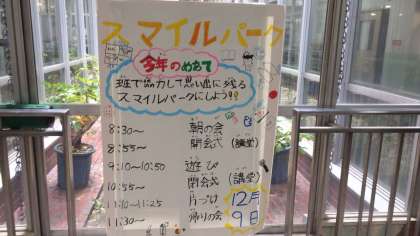 スマイルパーク
今年のめあて
班で協力して思い出に残る
スマイルパークにしよう!!
8:30〜 朝の会
8:55〜 開会式 (講堂)
9:10〜10:50 遊び
10:55〜 閉会式 (講堂)
11:10〜11:25 片づけ
11:30〜 帰りの会
12月
9日